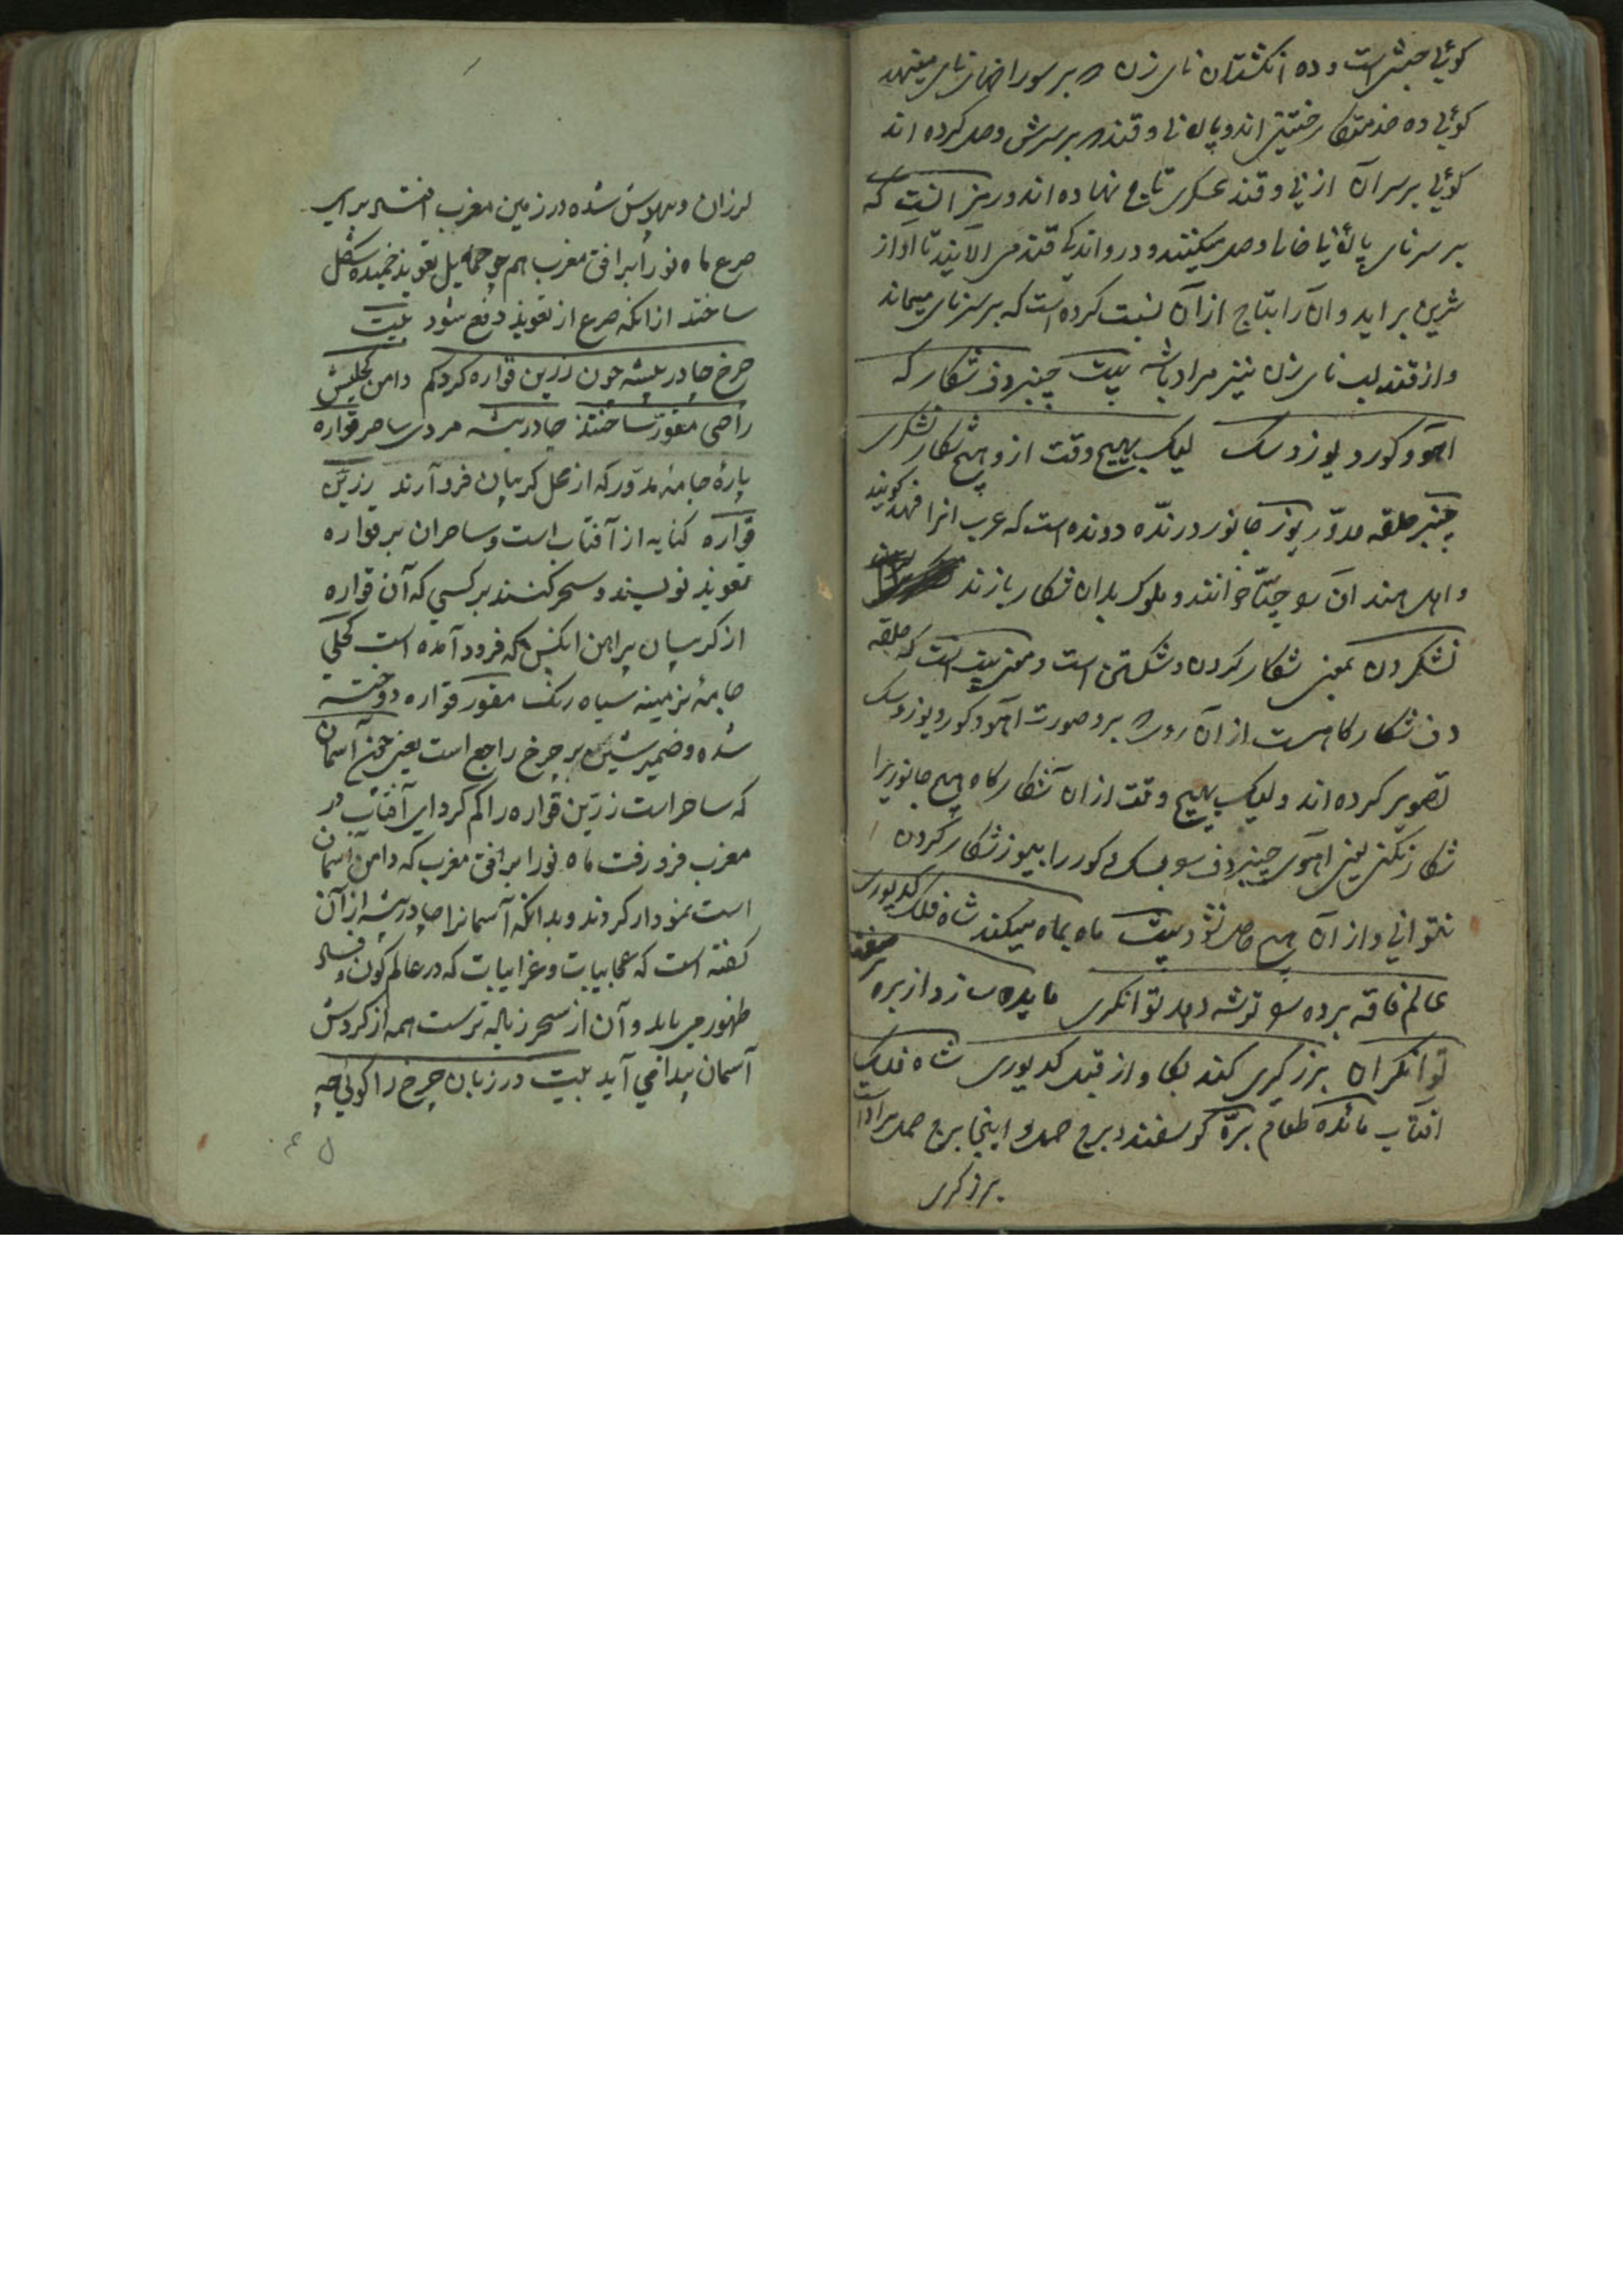 گوئی حبشی است و ده انگشتان نای زن بر سوراخهای نای میتهد
گوئی ده خدمتکار ختنی اند و پاله نی و قند بر سرش وصل کرده اند
گوئی بر سر آن از نی و قند عسکری تاج نهاده اند و رمز آنست که
بر سر نای پالهٔ نی خام وصل میکنند و در و اندکی قند می الایند تا آواز
شرین براید و آن را بتاج از آن نسبت کرده است که بر سر نای میماند
و از قند لب نای زن نیز مراد باشد بیت چنبر دف شکار که
آهو و گور و یوز و سک لیک بهیچ وقت ازو هیچ شکار نشکری
چنبر حلقه مدوّر یوز جانور درنده دونده است که عرب انرا فهد گویند
و اهل هند ان را چیتا خوانند و ملوک بدان شکار بازند
نشکردن بمعنی شکار کردن و شکستن است و معنی بیت انست که حلقه
دف شکار کاهست از آن رو که برو صورت آهو و گور و یوز و سک
تصویر کرده اند و لیک بهیچ وقت از ان شکار کاه هیچ جانوریرا
شکار نکنی یعنی آهوی چنبر دف را بسک و گور را بیوز شکار کردن
نتوانی و از آن هیچ حاصل نشود بیت ماه بماه میکند شاه فلک کدیوری
عالم فاقه برده را توشه دهد توانگری مایده سازد از بره
توانگران برزگری کند بگاو از قبل کدیوری شاه فلک
آفتاب مائده طعام برّه گوسفند و برج حمل و اینجا برج حمل مراد است
برزگری
لرزان و بیهوش شده در زمین مغرب افتاد برای
صرع ماه نو را بر افق مغرب هم چو حمایل تعویذ خمیده شکل
ساختند از انکه صرع از تعویذ دفع شود بیت
چرخ جادو پیشه چون زرین قواره کرد کم دامن کحلیش
را جیب مقوّر ساختند جادو پیشه مردی ساحر قواره
پارهٔ جامهٔ مدوّر که از محل گریبان فرود آرند زرین
قواره کنایه از آفتاب است و ساحران بر قواره
تعویذ نویسند و سحر کنند بر کسی که آن قواره
از گریبان پیراهن آنکس که فرود آمده است کحلی
جامهٔ نرمینه سیاه رنک مقور قواره دوخته
شده و ضمیر شین بر چرخ راجع است یعنی چون آسمان
که ساحر است زرّین قواره را کم کرد ای آفتاب در
مغرب فرو رفت ماه نو را بر افق مغرب که دامن آسمان
است نمودار کردند و بدانکه آسمانرا جادو پیشه از آن
کفته است که عجایبات و غرایبات که در عالم کون و فساد
ظهور می یابد و آن از سحر زیاده ترست همه از گردش
آسمان پیدا می آید بیت در زبان چرخ را گوئی چه